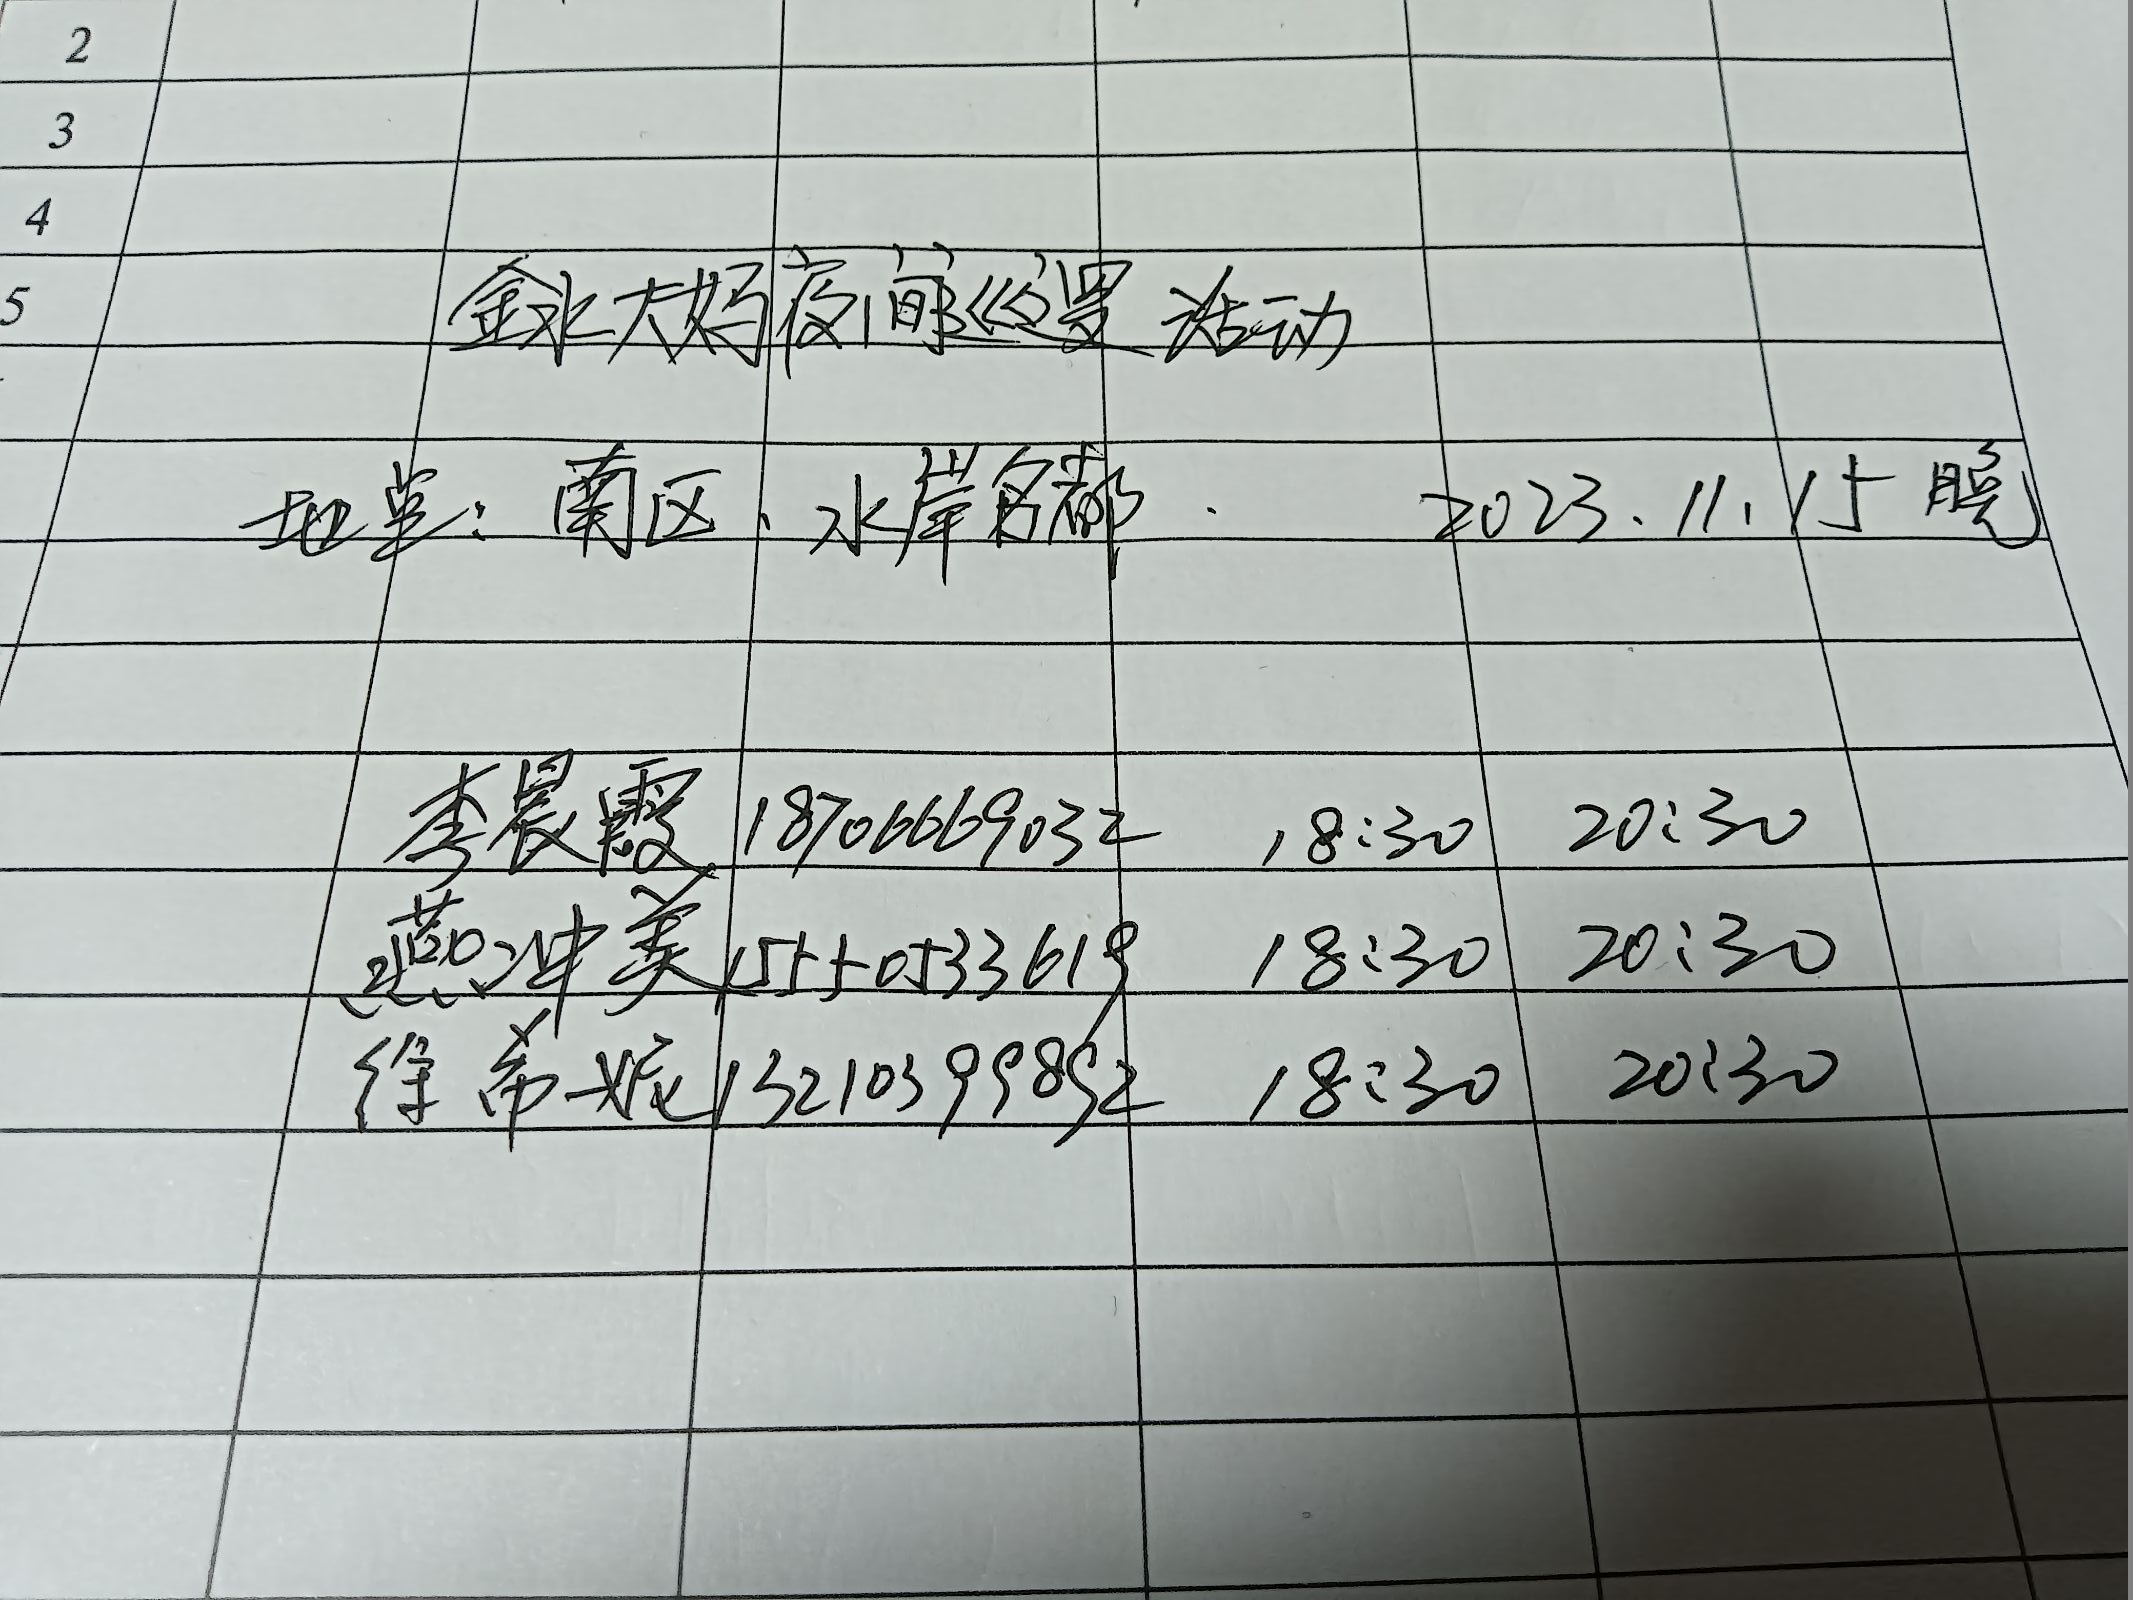 2
3
4
5
金水大妈夜间巡逻活动
地点：南区、水岸名都. 2023.11.15晚
李晨霞 18706669032 18:30 20:30
燕冲美 15550533619 18:30 20:30
徐希妮 13210399892 18:30 20:30